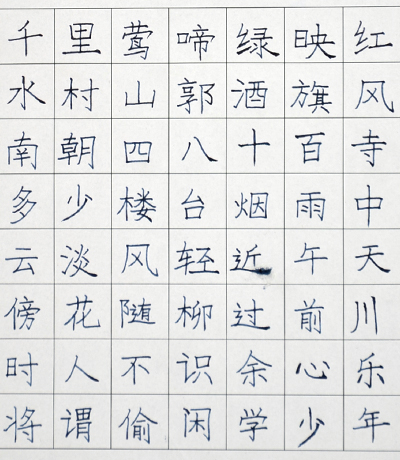 千里莺啼绿映红
水村山郭酒旗风
南朝四八十百寺
多少楼台烟雨中
云淡风轻近午天
傍花随柳过前川
时人不识余心乐
将谓偷闲学少年